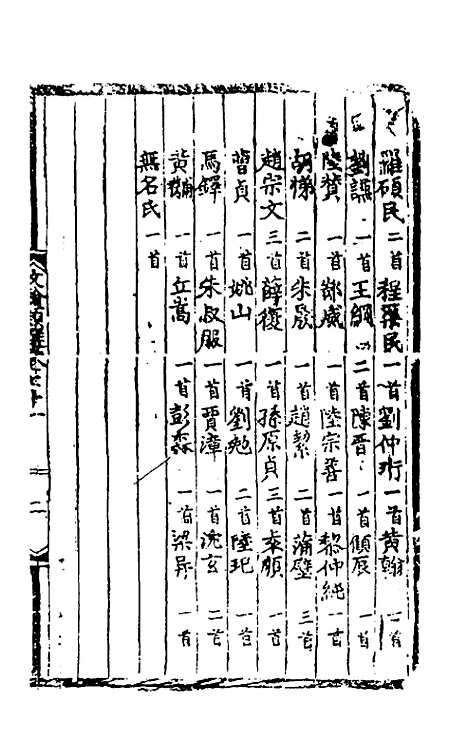 羅碩民 二首 程養民 一首 劉仲珩 一首 黄翰 一首
劉謙 一首 王綱 二首 陳晋 一首 傾辰 一首
陸贊 一首 鄒威 一首 陸宗善 一首 黎仲純 一首
胡樣 二首 朱晟 一首 趙絜 二首 蒲壁 三首
趙宗文 三首 薛復 一首 孫原貞 三首 秦顒 一首
曾貞 一首 姚山 一首 劉勉 二首 陸玘 一首
馬鐸 一首 朱叔服 一首 賈漳 一首 沈玄 二首
黄黼 一首 丘嵩 一首 彭森 一首 梁昇 一首
無名氏 一首
二